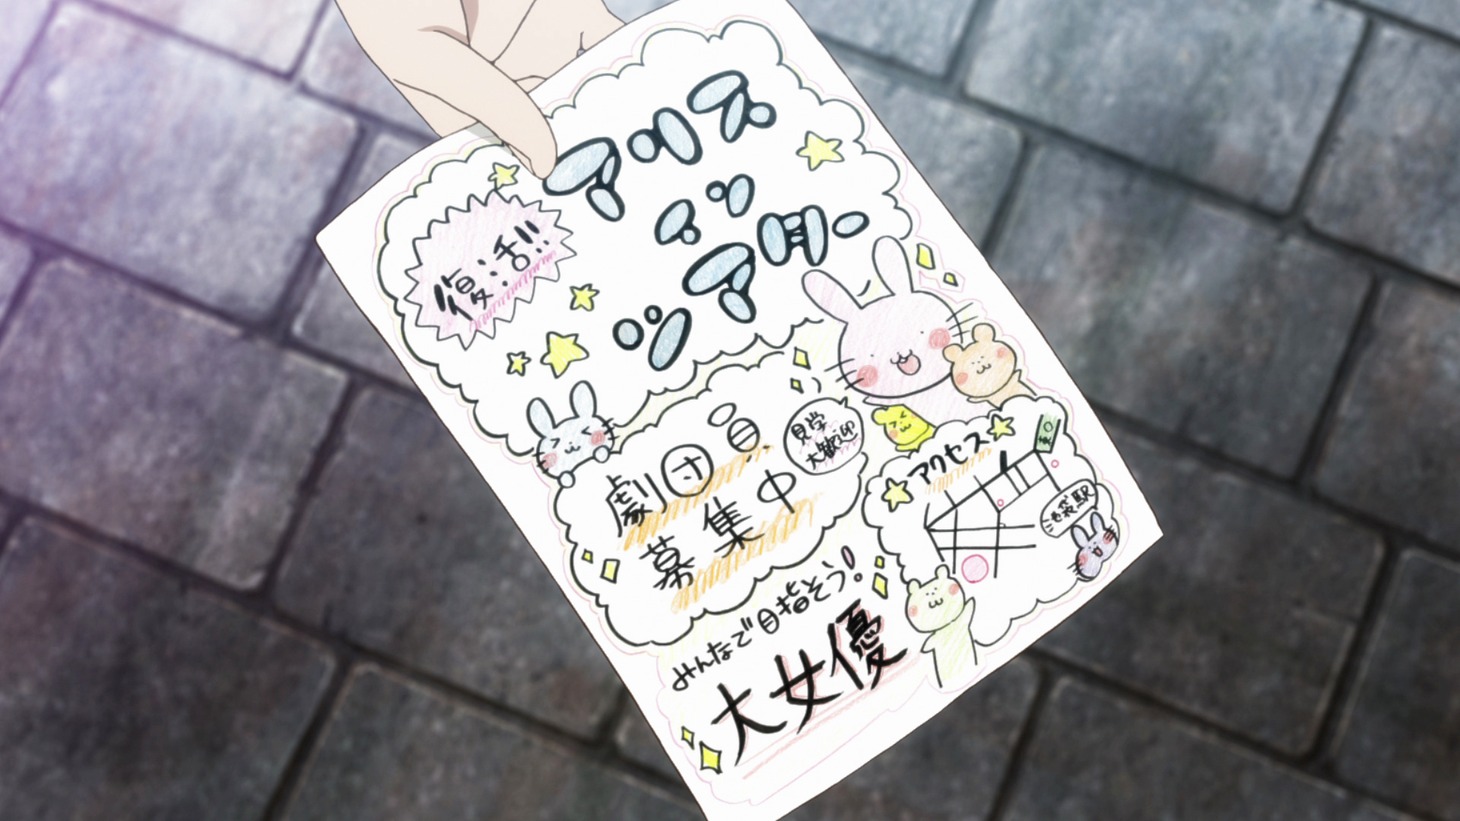 アリス
イン
シアター
復活!!
劇団員
募集中
見学
大歓迎
アクセス
東口
池袋駅
みんなで目指そう!
大女優